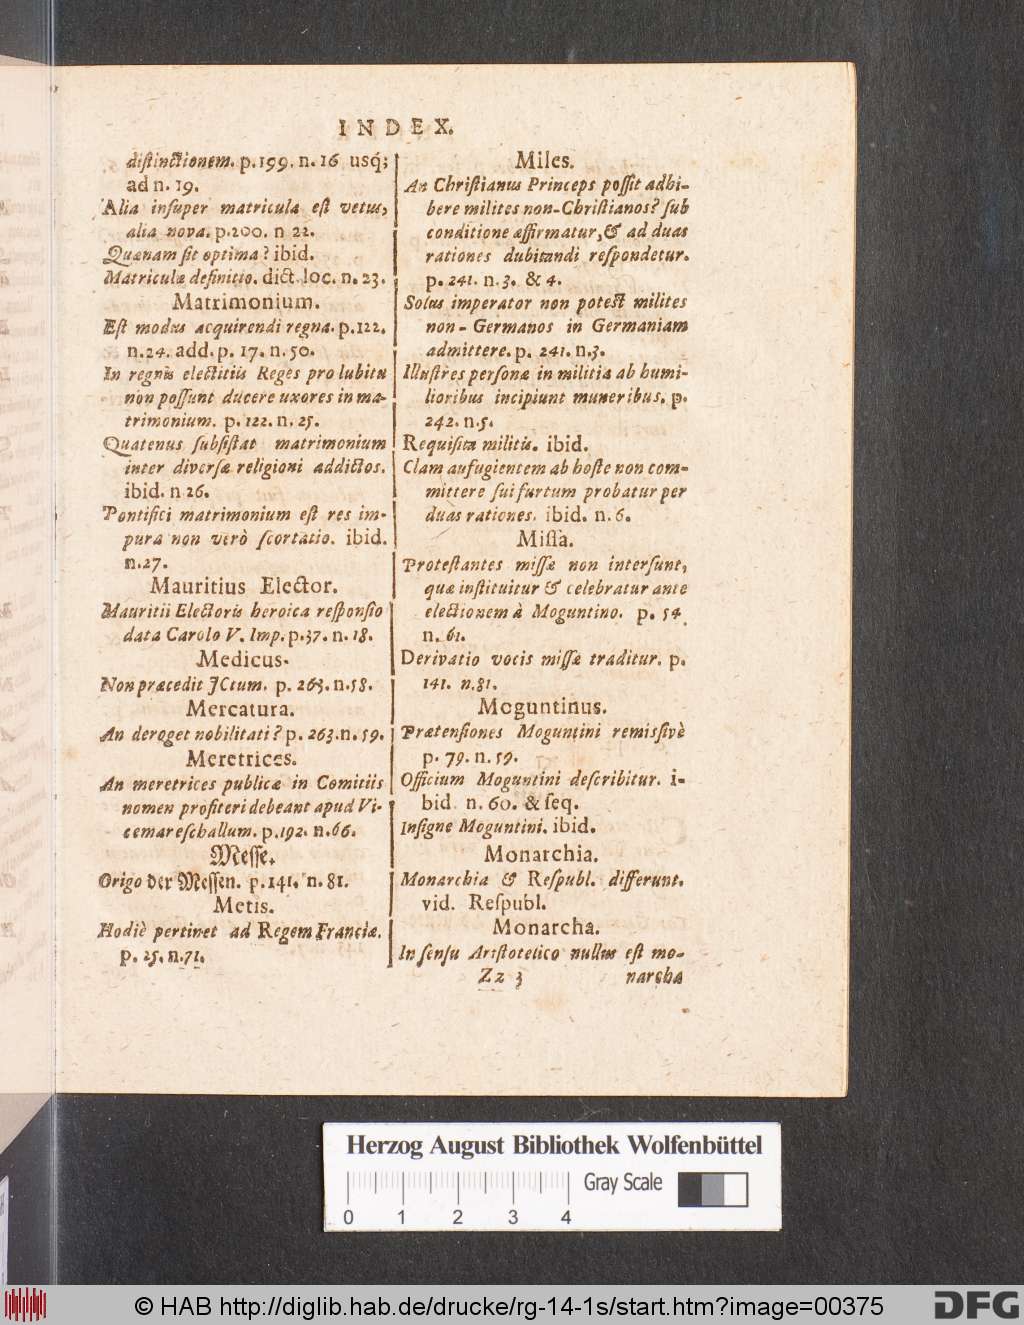 INDEX.
distinctionem. p. 199. n. 16 usq;
ad n. 19.
Alia insuper matricula est vetus,
alia nova. p. 200. n 22.
Quænam sit optima? ibid.
Matriculæ definitio. dict. loc. n. 23.
Matrimonium.
Est modus acquirendi regna. p. 122.
n. 24. add. p. 17. n. 50.
In regnis electitiis Reges pro lubitu
non possunt ducere uxores in ma-
trimonium. p. 122. n. 25.
Quatenus subsistat matrimonium
inter diversæ religioni addictos.
ibid. n 26.
Pontifici matrimonium est res im-
pura non verò scortatio. ibid.
n. 27.
Mauritius Elector.
Mauritii Electoris heroica responsio
data Carolo V. Imp. p. 37. n. 18.
Medicus.
Non præcedit JCtum. p. 263. n. 58.
Mercatura.
An deroget nobilitati? p. 263. n. 59.
Meretrices.
An meretrices publicæ in Comitiis
nomen profiteri debeant apud Vi-
cemareschallum. p. 192. n. 66.
Messe.
Origo der Messen. p. 141. n. 81.
Metis.
Hodiè pertinet ad Regem Franciæ.
p. 25. n. 71.
Miles.
An Christianus Princeps possit adhi-
bere milites non-Christianos? sub
conditione affirmatur, & ad duas
rationes dubitandi respondetur.
p. 241. n. 3. & 4.
Solus imperator non potest milites
non-Germanos in Germaniam
admittere. p. 241. n. 3.
Illustres personæ in militia ab humi-
lioribus incipiunt muneribus. p.
242. n. 5.
Requisita militis. ibid.
Clam aufugientem ab hoste non com-
mittere sui furtum probatur per
duas rationes. ibid. n. 6.
Missa.
Protestantes missæ non intersunt,
quæ instituitur & celebratur ante
electionem à Moguntino. p. 54
n. 61.
Derivatio vocis missæ traditur. p.
141. n. 81.
Moguntinus.
Prætensiones Moguntini remissivè
p. 79. n. 59.
Officium Moguntini describitur. i-
bid. n. 60. & seq.
Insigne Moguntini. ibid.
Monarchia.
Monarchia & Respubl. differunt.
vid. Respubl.
Monarcha.
In sensu Aristotelico nullus est mo-
Zz 3 narcha
Herzog August Bibliothek Wolfenbüttel
Gray Scale
0 1 2 3 4
© HAB http://diglib.hab.de/drucke/rg-14-1s/start.htm?image=00375
DFG